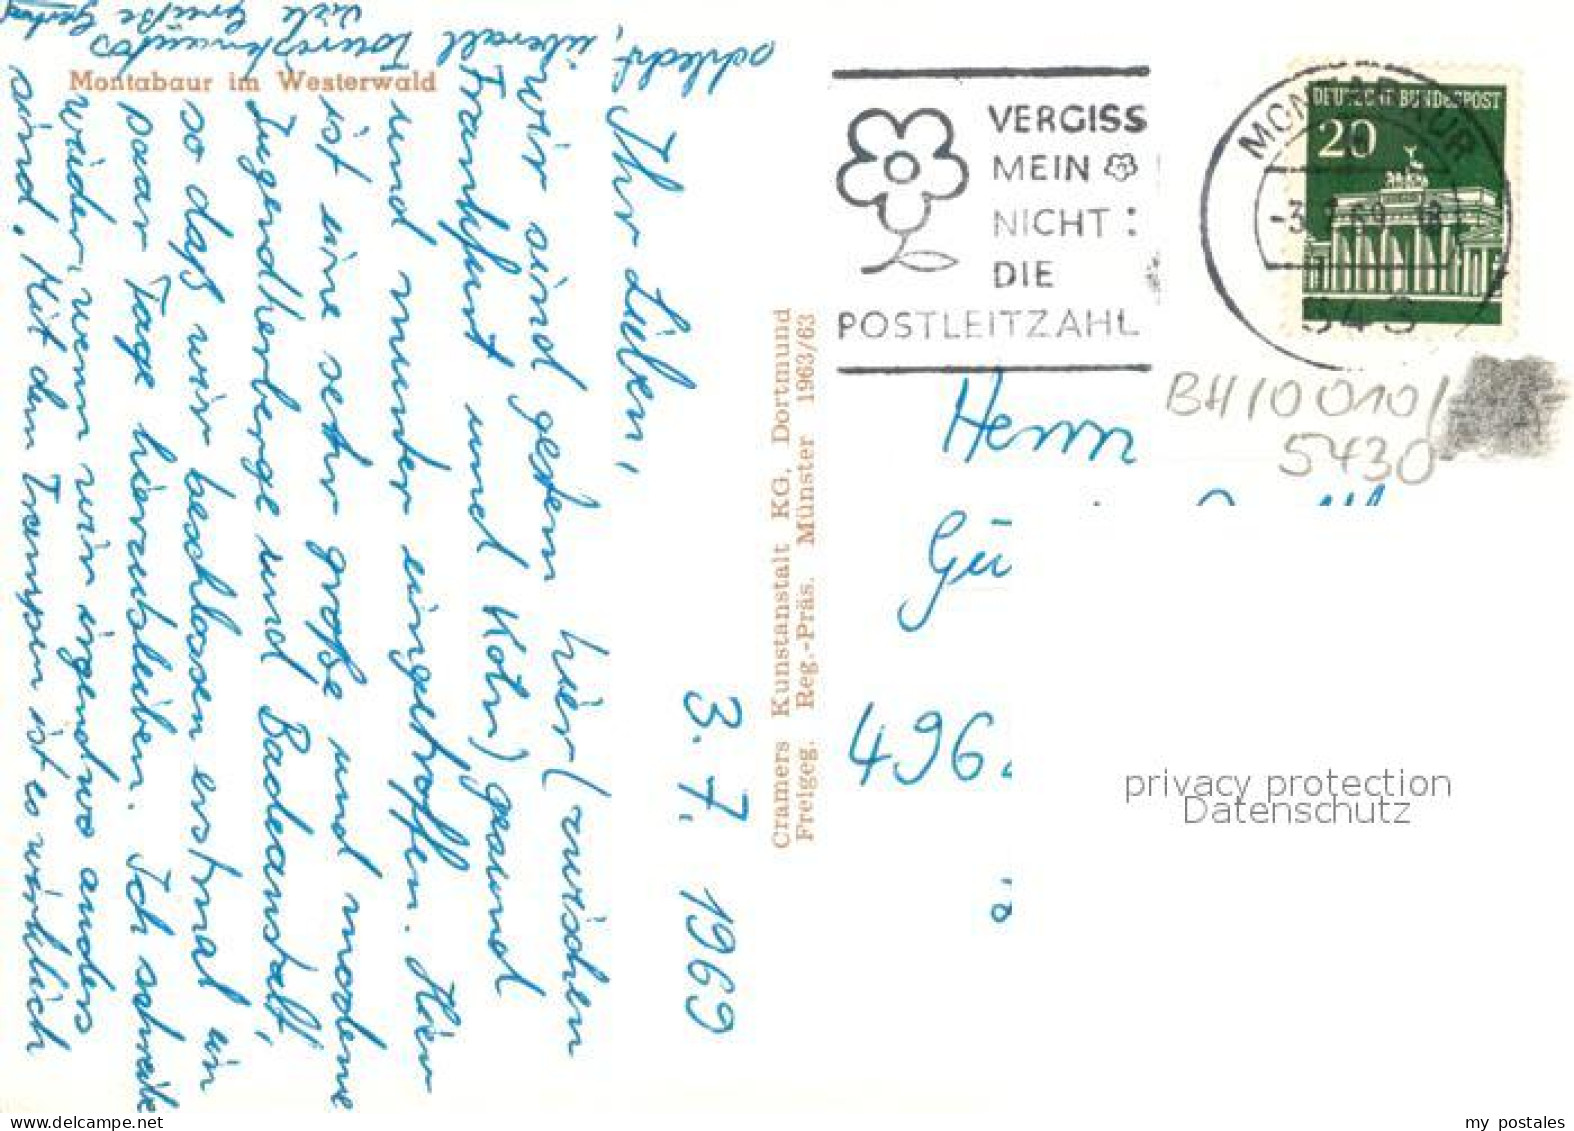 Montabaur im Westerwald
3. 7. 1969
Ihr Lieben,
wir sind gestern hier (zwischen
Frankfurt und Köln) gesund
und munter eingetroffen. Hier
ist eine sehr große und moderne
Jugendherberge und Badeanstalt,
so daß wir beschlossen erstmal ein
paar Tage hierzubleiben. Ich schreibe
wieder, wenn wir irgendwo anders
sind. Mit dem Trampen ist es wirklich
schlecht, überall
viele Grüße
Cramers Kunstanstalt KG, Dortmund
Freigeg. Reg.-Präs. Münster 1963/63
VERGISS
MEIN
NICHT:
DIE
POSTLEITZAHL
MONTABAUR
DEUTSCHE BUNDESPOST
20
543
BH10010/
5430
Herrn
Gü
496
privacy protection
Datenschutz
my postales